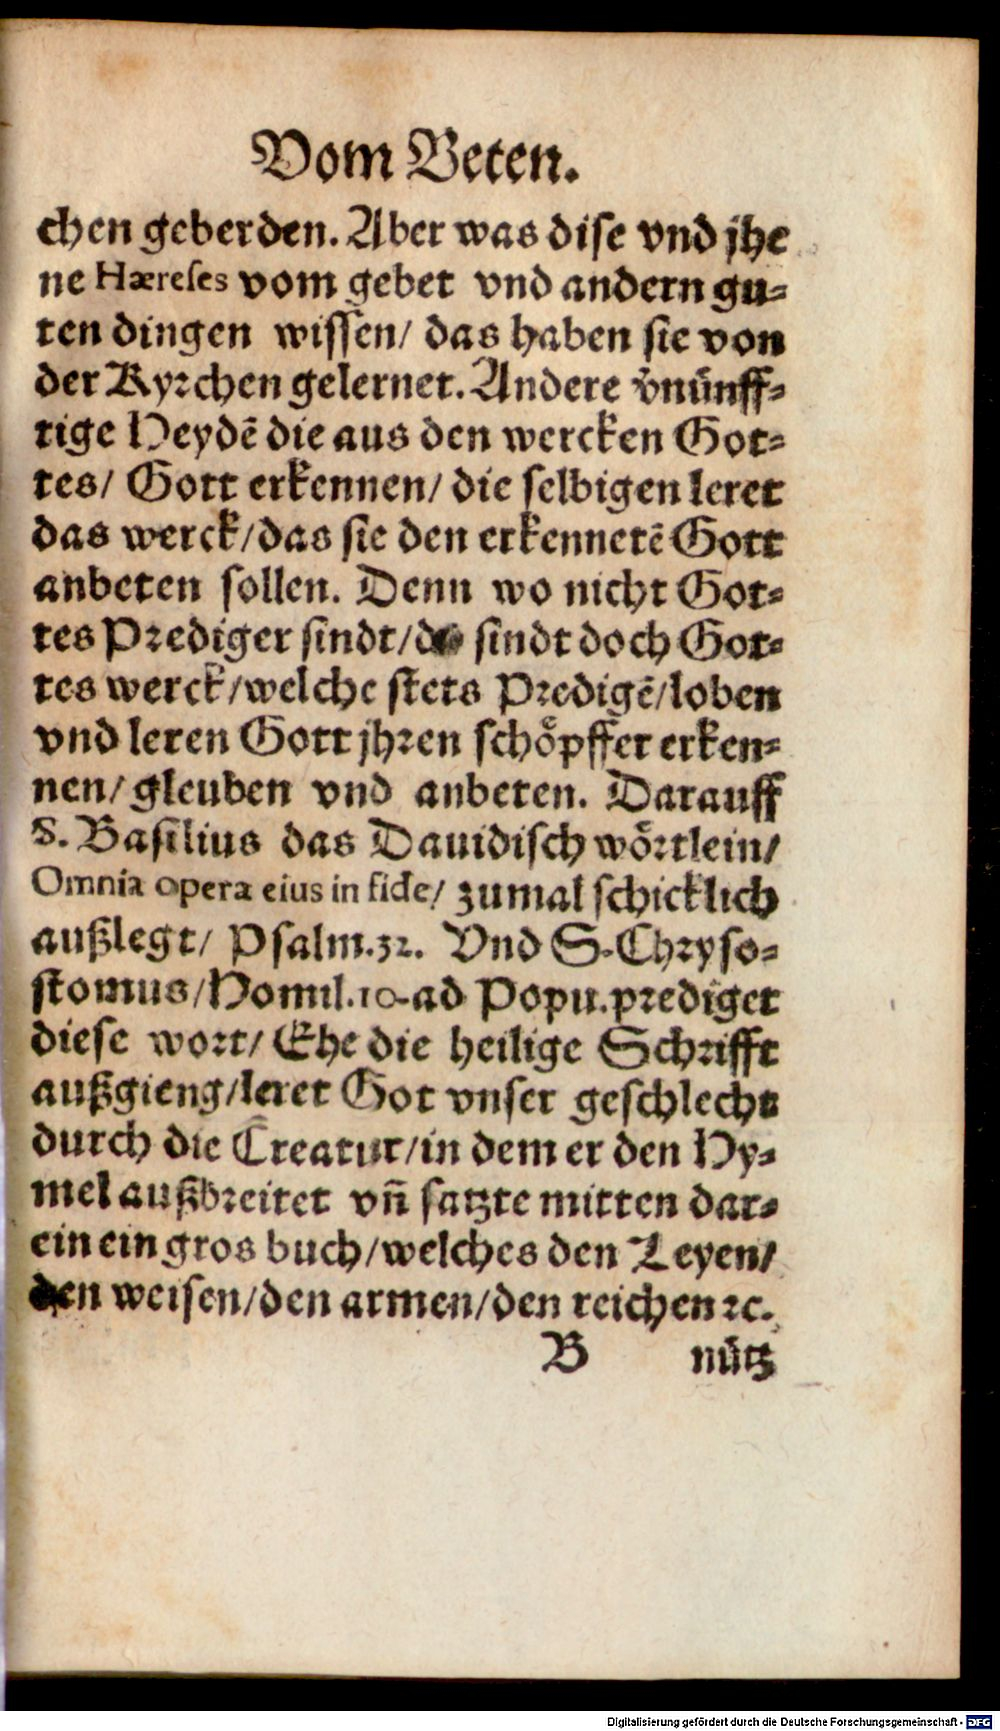 Vom Beten.
chen geberden. Aber was dise vnd jhe
ne Hæreses vom gebet vnd andern gu-
ten dingen wissen/ das haben sie von
der Kyrchen gelernet. Andere v̄nünff-
tige Heydē die aus den wercken Got-
tes/ Gott erkennen/ die selbigen leret
das werck/das sie den erkennetē Gott
anbeten sollen. Denn wo nicht Got-
tes Prediger sindt/ sindt doch Got-
tes werck/welche stets Predigē/loben
vnd leren Gott jhren schöpffer erken-
nen/ gleuben vnd anbeten. Darauff
S. Basilius das Dauidisch wörtlein/
Omnia opera eius in fide/ zumal schicklich
außlegt/ Psalm.32. Vnd S. Chryso-
stomus/Homil.10.ad Popu.prediget
diese wort/ Ehe die heilige Schrifft
außgieng/leret Got vnser geschlecht
durch die Creatur/in dem er den Hy-
mel außbreitet vn̄ satzte mitten dar-
ein ein gros buch/welches den Leyen/
den weisen/den armen/den reichen ꝛc.
B nütz
Digitalisierung gefördert durch die Deutsche Forschungsgemeinschaft - DFG